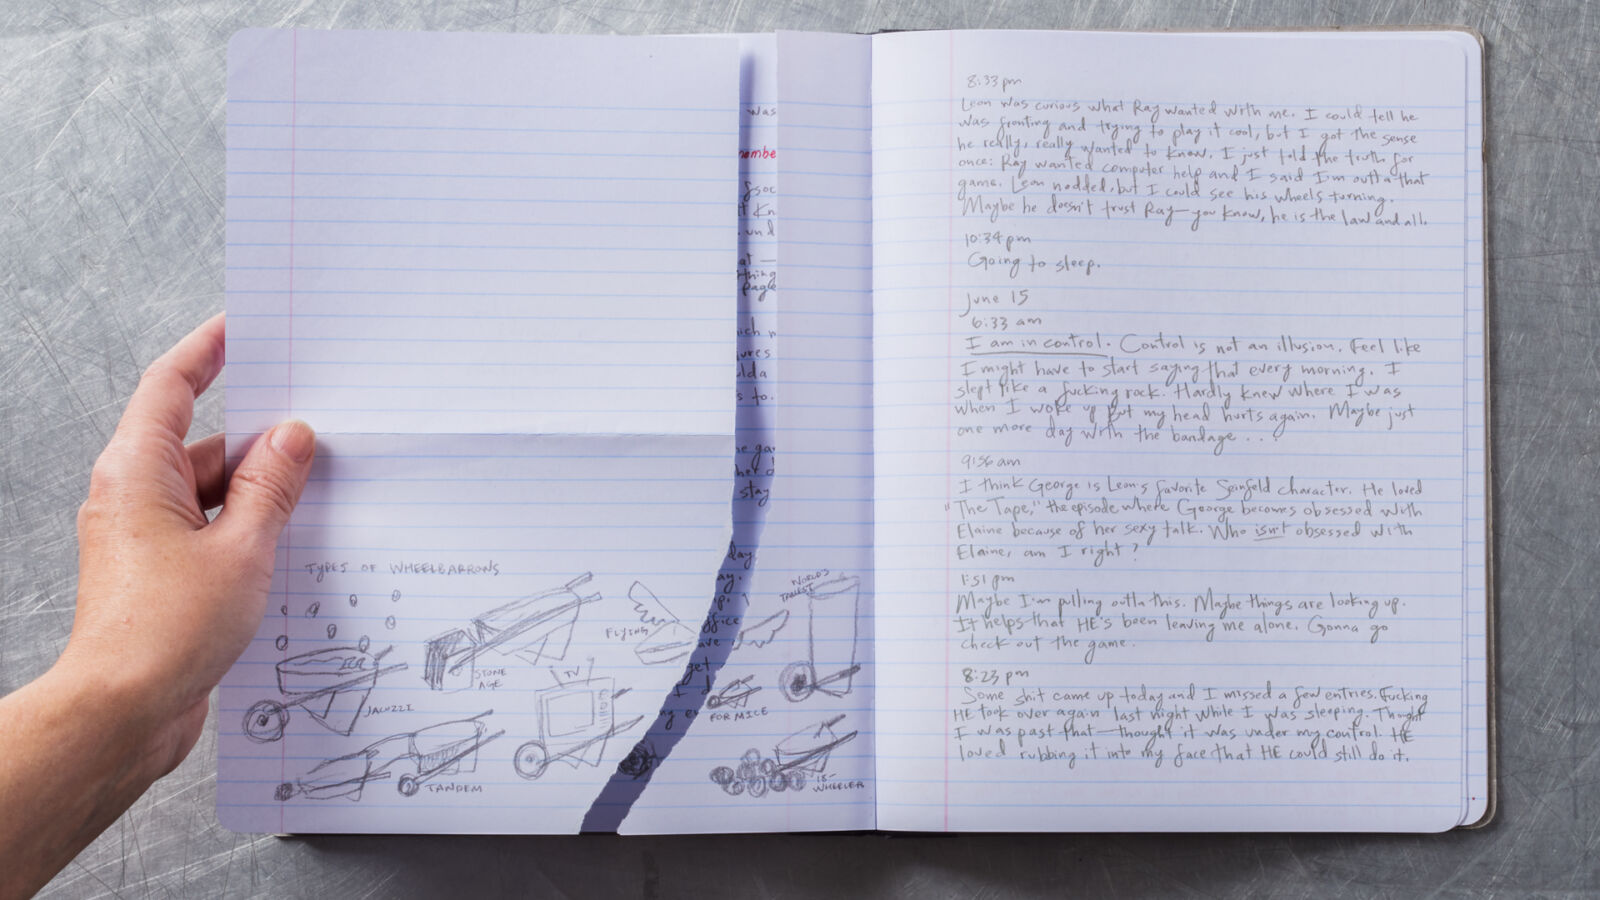 was
TYPES OF WHEELBARROWS
JACUZZI
STONE AGE
FLYING
TV
TANDEM
office
get
stay
day.
FOR MICE
WORLD'S
TALLEST
18-
WHEELER
8:33 pm
Leon was curious what Ray wanted with me. I could tell he
was fronting and trying to play it cool, but I got the sense
he really, really wanted to know. I just told the truth for
once: Ray wanted computer help and I said I'm outta that
game. Leon nodded, but I could see his wheels turning.
Maybe he doesn't trust Ray—you know, he is the law and all.
10:34 pm
Going to sleep.
June 15
6:33 am
I am in control. Control is not an illusion. Feel like
I might have to start saying that every morning. I
slept like a fucking rock. Hardly knew where I was
when I woke up but my head hurts again. Maybe just
one more day with the bandage...
9:56 am
I think George is Leon's favorite Seinfeld character. He loved
"The Tape," the episode where George becomes obsessed with
Elaine because of her sexy talk. Who isn't obsessed with
Elaine, am I right?
1:51 pm
Maybe I'm pulling outta this. Maybe things are looking up.
It helps that HE's been leaving me alone. Gonna go
check out the game.
8:23 pm
Some shit came up today and I missed a few entries. Fucking
HE took over again last night while I was sleeping. Thought
I was past that—thought it was under my control. HE
loved rubbing it into my face that HE could still do it.